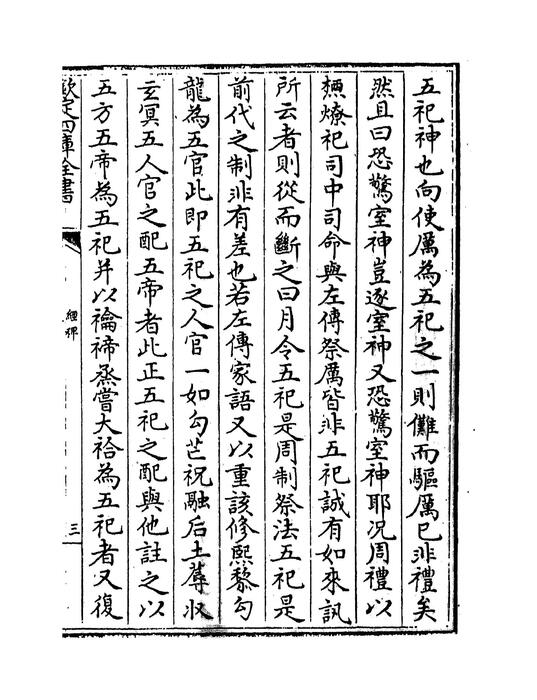 五祀神也向使厲為五祀之一則儺而驅厲已非禮矣
然且曰恐驚室神豈逐室神又恐驚室神耶况周禮以
槱燎祀司中司命與左傳祭厲皆非五祀誠有如來訊
所云者則從而斷之曰月令五祀是周制祭法五祀是
前代之制非有差也若左傳家語又以重該修熙黎勾
龍為五官此即五祀之人官一如勾芒祝融后土蓐收
𤣥冥五人官之配五帝者此正五祀之配與他註之以
五方五帝為五祀并以禴禘烝嘗大祫為五祀者又復
欽定四庫全書
經稗
三